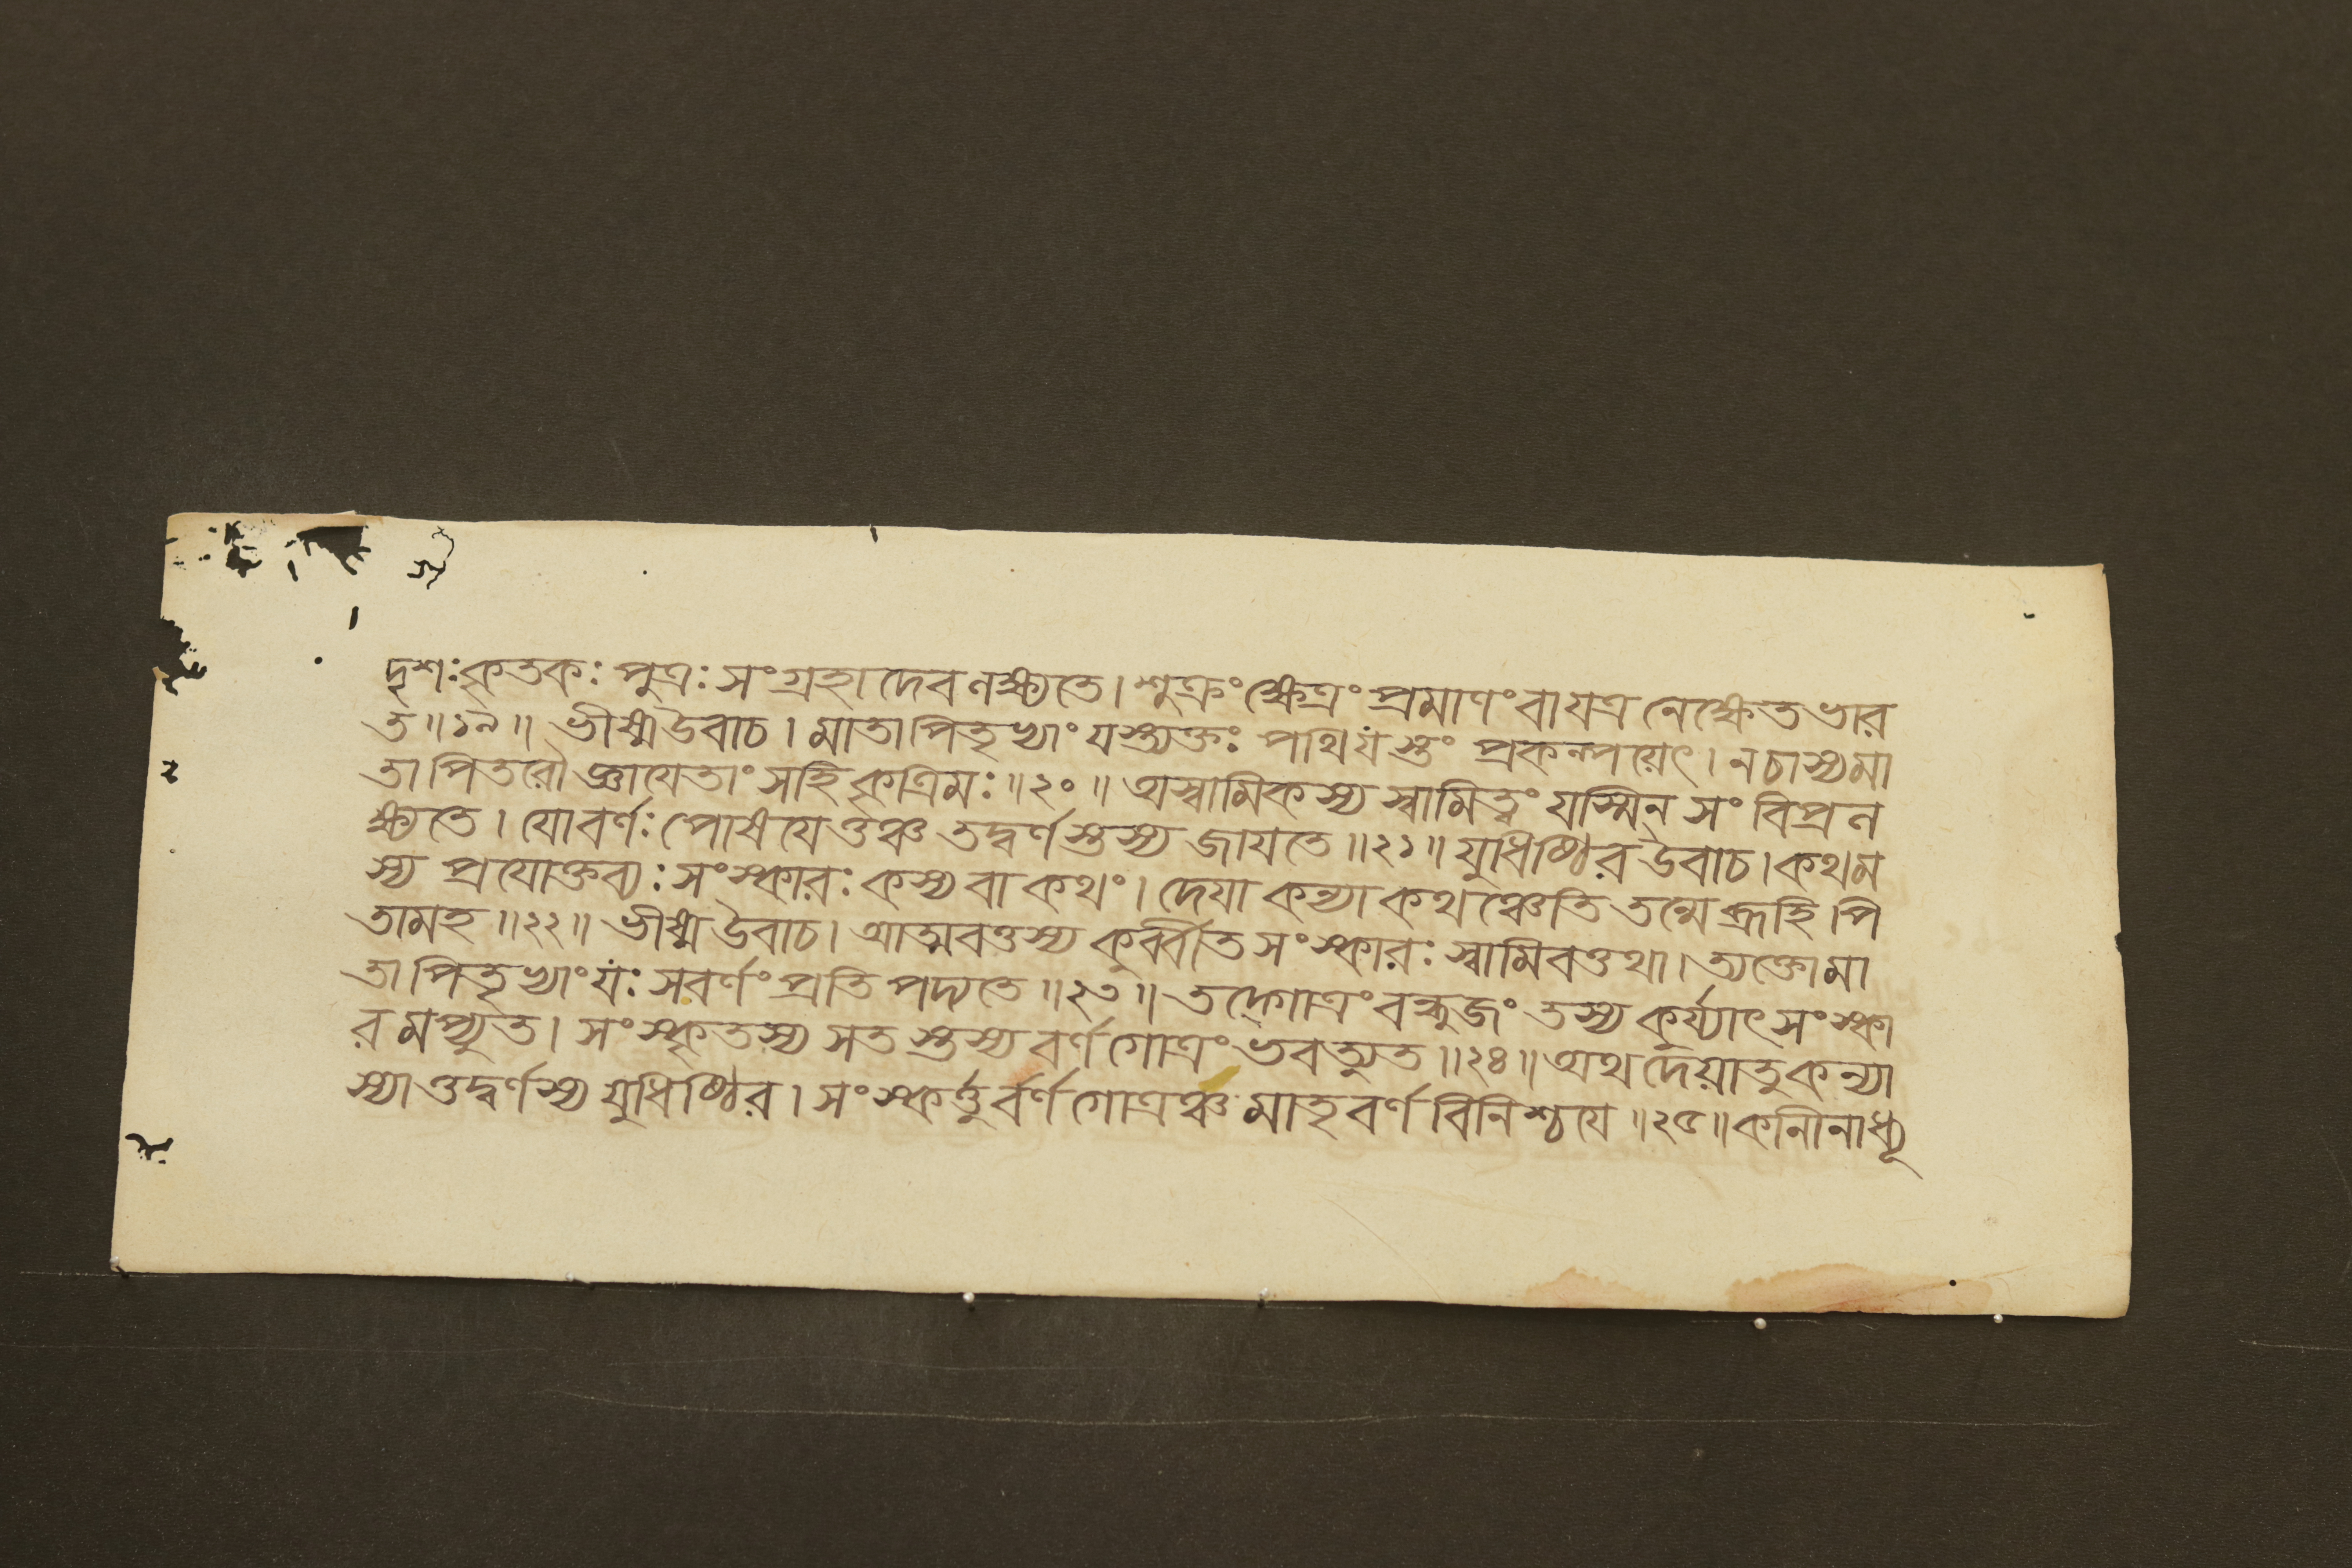 দৃশঃ কৃতকঃ পুত্রঃ সংগ্রহাদেব লক্ষ্যতে। শুক্রং ক্ষেত্রং প্রমাণং বা যত্র নেক্ষেত ভার
ত॥১৯॥ ভীষ্ম উবাচ। মাতাপিতৃভ্যাং যস্ত্যক্তঃ পথি যস্তং প্রকল্পয়েৎ। ন চাস্য মা
তাপিতরৌ জ্ঞায়েতাং স হি কৃত্রিমঃ॥২০॥ অস্বামিকস্য স্বামিত্বং যস্মিন সংবিপ্রল
ক্ষ্যতে। যো বর্ণঃ পোষয়েত্তঞ্চ তদ্বর্ণস্তস্য জায়তে॥২১॥ যুধিষ্ঠির উবাচ। কথম
স্য প্রযোক্তব্যঃ সংস্কারঃ কস্য বা কথং। দেয়া কন্যা কথঞ্চেতি তন্মে ব্রূহি পি
তামহ॥২২॥ ভীষ্ম উবাচ। আত্মবত্তস্য কুর্ব্বীত সংস্কারঃ স্বামিবত্তথা। ত্যক্তো মা
তাপিতৃভ্যাং যঃ সবর্ণং প্রতিপদ্যতে॥২৩॥ তদ্গোত্রং বন্ধুজং তস্য কুর্য্যাৎ সংস্কা
রমপ্যুত। সংস্কৃতস্য সতস্তস্য বর্ণগোত্রং ভবত্যুত॥২৪॥ অথ দেয়া তু কন্যা
স্যাত্তদ্বর্ণস্য যুধিষ্ঠির। সংস্কর্ত্তুর্বর্ণগোত্রঞ্চ মাতৃবর্ণবিনিশ্চয়ে॥২৫॥ কানীনাধ্যূ